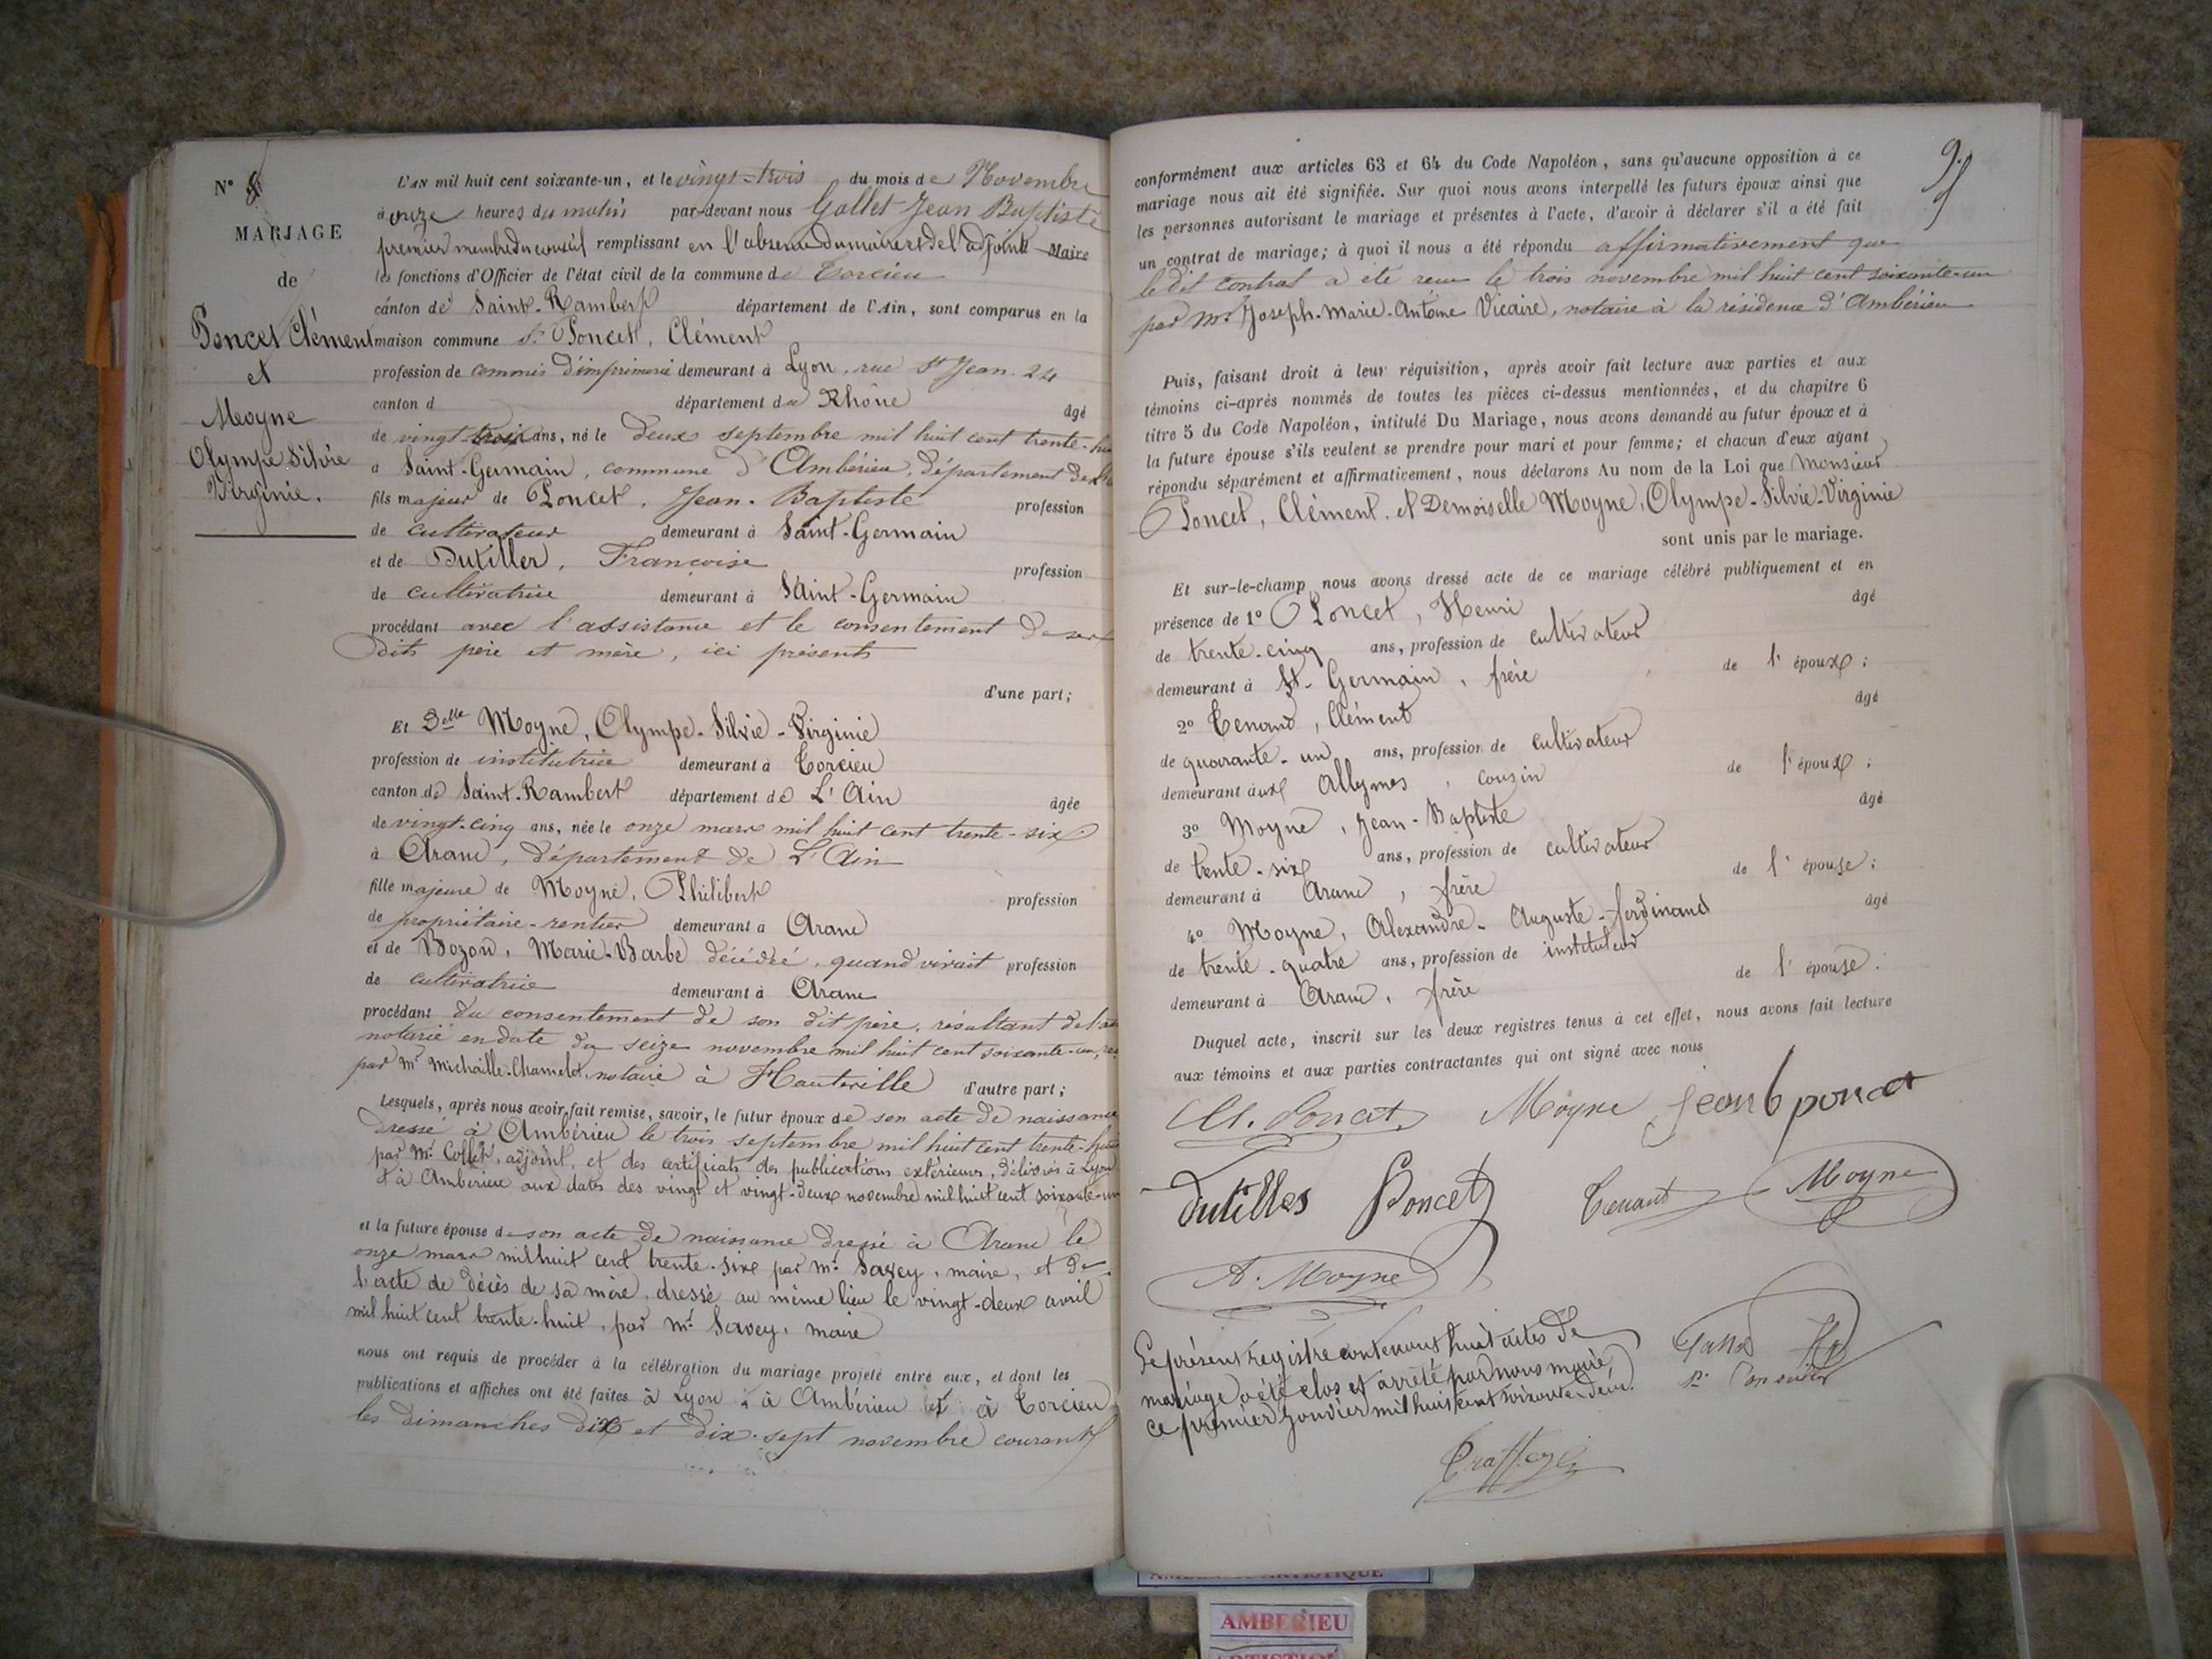 N° 8
MARIAGE
de
Poncet Clément
et
Moyne
Olympe Silvie
Virginie.
L'AN mil huit cent soixante-un, et le vingt-trois du mois de Novembre
à onze heures du matin par-devant nous Gallet Jean Baptiste
premier membre du conseil remplissant en l'absence du maire et de l'adjoint Maire
les fonctions d'Officier de l'état civil de la commune de Torcieu
canton de Saint-Rambert département de l'Ain, sont comparus en la
maison commune Sr Poncet, Clément
profession de commis d'imprimerie demeurant à Lyon, rue St Jean. 24
canton d département du Rhône âgé
de vingt trois ans, né le deux septembre mil huit cent trente-hu
a Saint-Germain, commune d'Ambérieu, département de l'
fils majeur de Poncet, Jean-Baptiste profession
de cultivateur demeurant à Saint-Germain
et de Dutiller, Françoise profession
de cultivatrice demeurant à Saint-Germain
procédant avec l'assistance et le consentement de ses
dits père et mère, ici présents
d'une part;
Et Delle Moyne, Olympe-Silvie-Virginie
profession de institutrice demeurant à Torcieu
canton de Saint-Rambert département de L'Ain âgée
de vingt-cinq ans, née le onze mars mil huit cent trente-six
à Aranc, département de L'Ain
fille majeure de Moyne, Philibert profession
de propriétaire-rentier demeurant à Aranc
et de Bozon, Marie-Barbe décédée, quand vivait profession
de cultivatrice demeurant à Aranc
procédant du consentement de son dit père, résultant de l'
notarié en date du seize novembre mil huit cent soixante-un,
par Mr Michaille-Chamelet, notaire à Hauteville d'autre part;
Lesquels, après nous avoir fait remise, savoir, le futur époux de son acte de naissance
dressé à Ambérieu le trois septembre mil huit cent trente-huit
par Mr Collet, adjoint, et des certificats des publications extérieures, délivrés à Lyon
et à Ambérieu aux dates des vingt et vingt-deux novembre mil huit cent soixante-un
et la future épouse de son acte de naissance dressé à Aranc le
onze mars mil huit cent trente-six par Mr Savey, maire, et de
l'acte de décès de sa mère, dressé au même lieu le vingt-deux avril
mil huit cent trente-huit, par Mr Savey, maire
nous ont requis de procéder à la célébration du mariage projeté entre eux, et dont les
publications et affiches ont été faites à Lyon, à Ambérieu et à Torcieu
les dimanches dix et dix-sept novembre courant
9
conformément aux articles 63 et 64 du Code Napoléon, sans qu'aucune opposition à ce
mariage nous ait été signifiée. Sur quoi nous avons interpellé les futurs époux ainsi que
les personnes autorisant le mariage et présentes à l'acte, d'avoir à déclarer s'il a été fait
un contrat de mariage; à quoi il nous a été répondu affirmativement que
le dit contrat a été reçu le trois novembre mil huit cent soixante-un
par Mr Joseph-Marie-Antoine Vicaire, notaire à la résidence d'Ambérieu
Puis, faisant droit à leur réquisition, après avoir fait lecture aux parties et aux
témoins ci-après nommés de toutes les pièces ci-dessus mentionnées, et du chapitre 6
titre 5 du Code Napoléon, intitulé Du Mariage, nous avons demandé au futur époux et à
la future épouse s'ils veulent se prendre pour mari et pour femme; et chacun d'eux ayant
répondu séparément et affirmativement, nous déclarons Au nom de la Loi que Monsieur
Poncet, Clément, et Demoiselle Moyne, Olympe-Silvie-Virginie
sont unis par le mariage.
Et sur-le-champ nous avons dressé acte de ce mariage célébré publiquement et en
présence de 1° Poncet, Henri âgé
de trente-cinq ans, profession de cultivateur
demeurant à St-Germain, frère de l'époux;
2° Tenand, Clément âgé
de quarante-un ans, profession de cultivateur
demeurant aux Allymes, cousin de l'époux;
3° Moyne, Jean-Baptiste âgé
de trente-six ans, profession de cultivateur
demeurant à Aranc, frère de l'épouse;
4° Moyne, Alexandre-Auguste-ferdinand âgé
de trente-quatre ans, profession de instituteur
demeurant à Aranc, frère de l'épouse.
Duquel acte, inscrit sur les deux registres tenus à cet effet, nous avons fait lecture
aux témoins et aux parties contractantes qui ont signé avec nous
Cl. Poncet Moyne jean b poncet
dutilles Poncet Tenand Moyne
A. Moyne
Le présent registre contenant huit actes de
mariage a été clos et arrêté par nous maire,
ce premier Janvier mil huit cent soixante-deux.
AMBERIEU